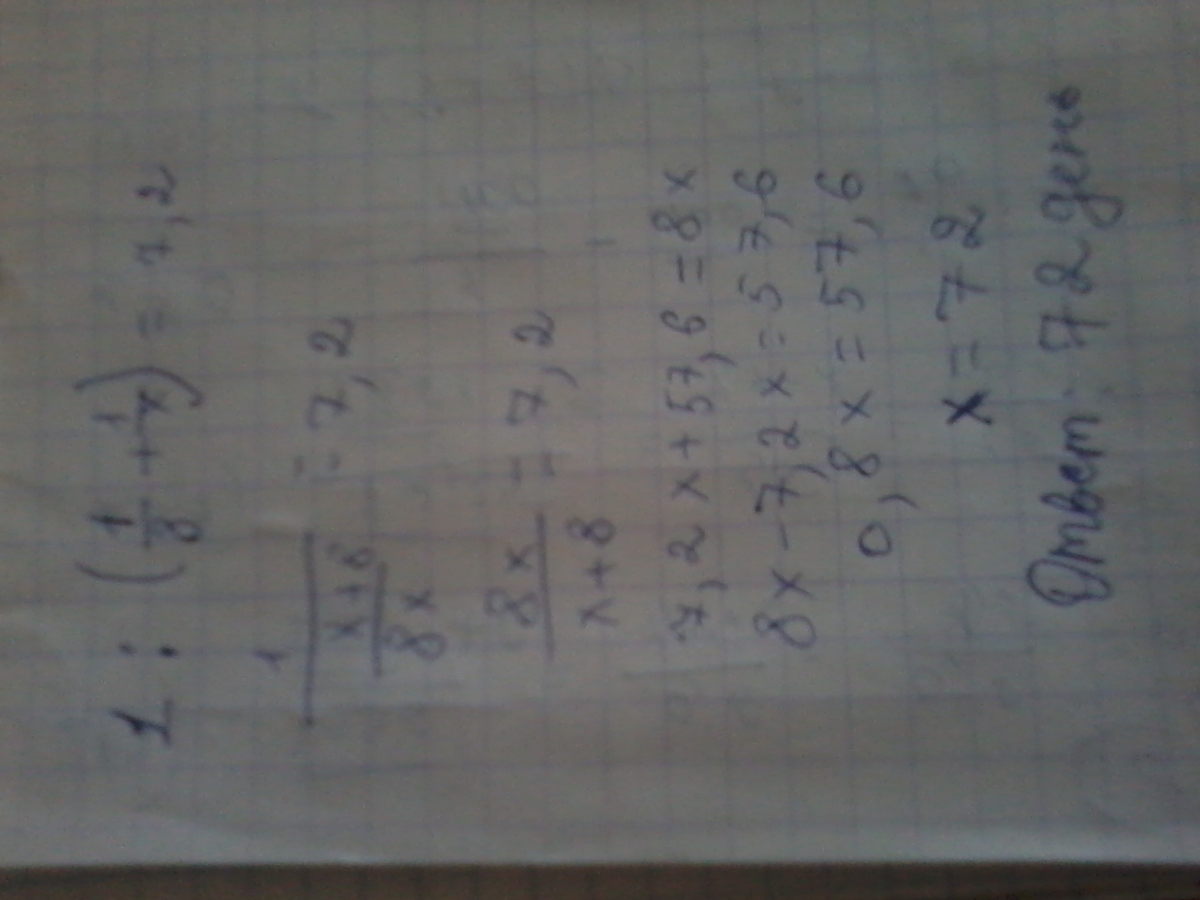 1 : (1/8 + 1/x) = 7,2
1/((x+8)/(8x)) = 7,2
8x/(x+8) = 7,2
7,2x+57,6=8x
8x-7,2x=57,6
0,8x=57,6
x=72
Ответ: 72 день